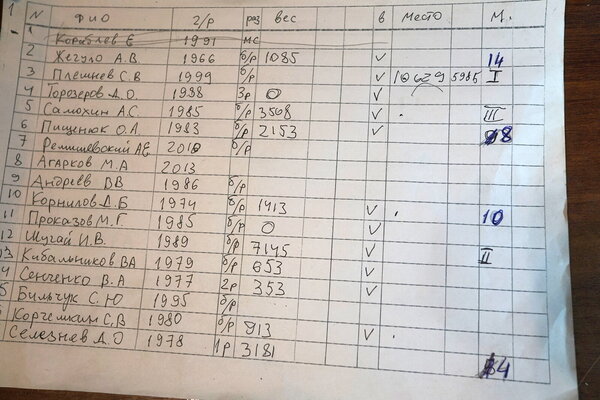 N ФИО г/р раз вес в место М.
1 Кораблев Е 1991 мс
2 Жегуло А.В 1966 б/р 1085 ✓ 14
3 Плешнев С.В 1999 б/р ✓ 10629 5985 I
4 Торозеров Д.О. 1938 3р 0 ✓
5 Самохин А.С. 1985 б/р 3568 ✓ III
6 Пищенюк О.Л. 1983 б/р 2153 ✓ 8
7 Ремишевский АЕ б/р
8 Агарков М.А 2013
9 Андреев ВВ 1986 б/р
10 Корнилов Д.Б 1974 б/р 1413 ✓ 10
11 Проказов М.Г 1985 б/р 0 ✓
12 Шугай И.В. 1989 б/р 7145 ✓ II
13 Кибальников ВА 1979 б/р 653 ✓
4 Сенченко В.А 1977 2р 353 ✓
5 Бильчук С.Ю 1995 б/р
Корчемкин С,В 1980 б/р 913 ✓
Селезнев Д.О 1978 1р 3181 4